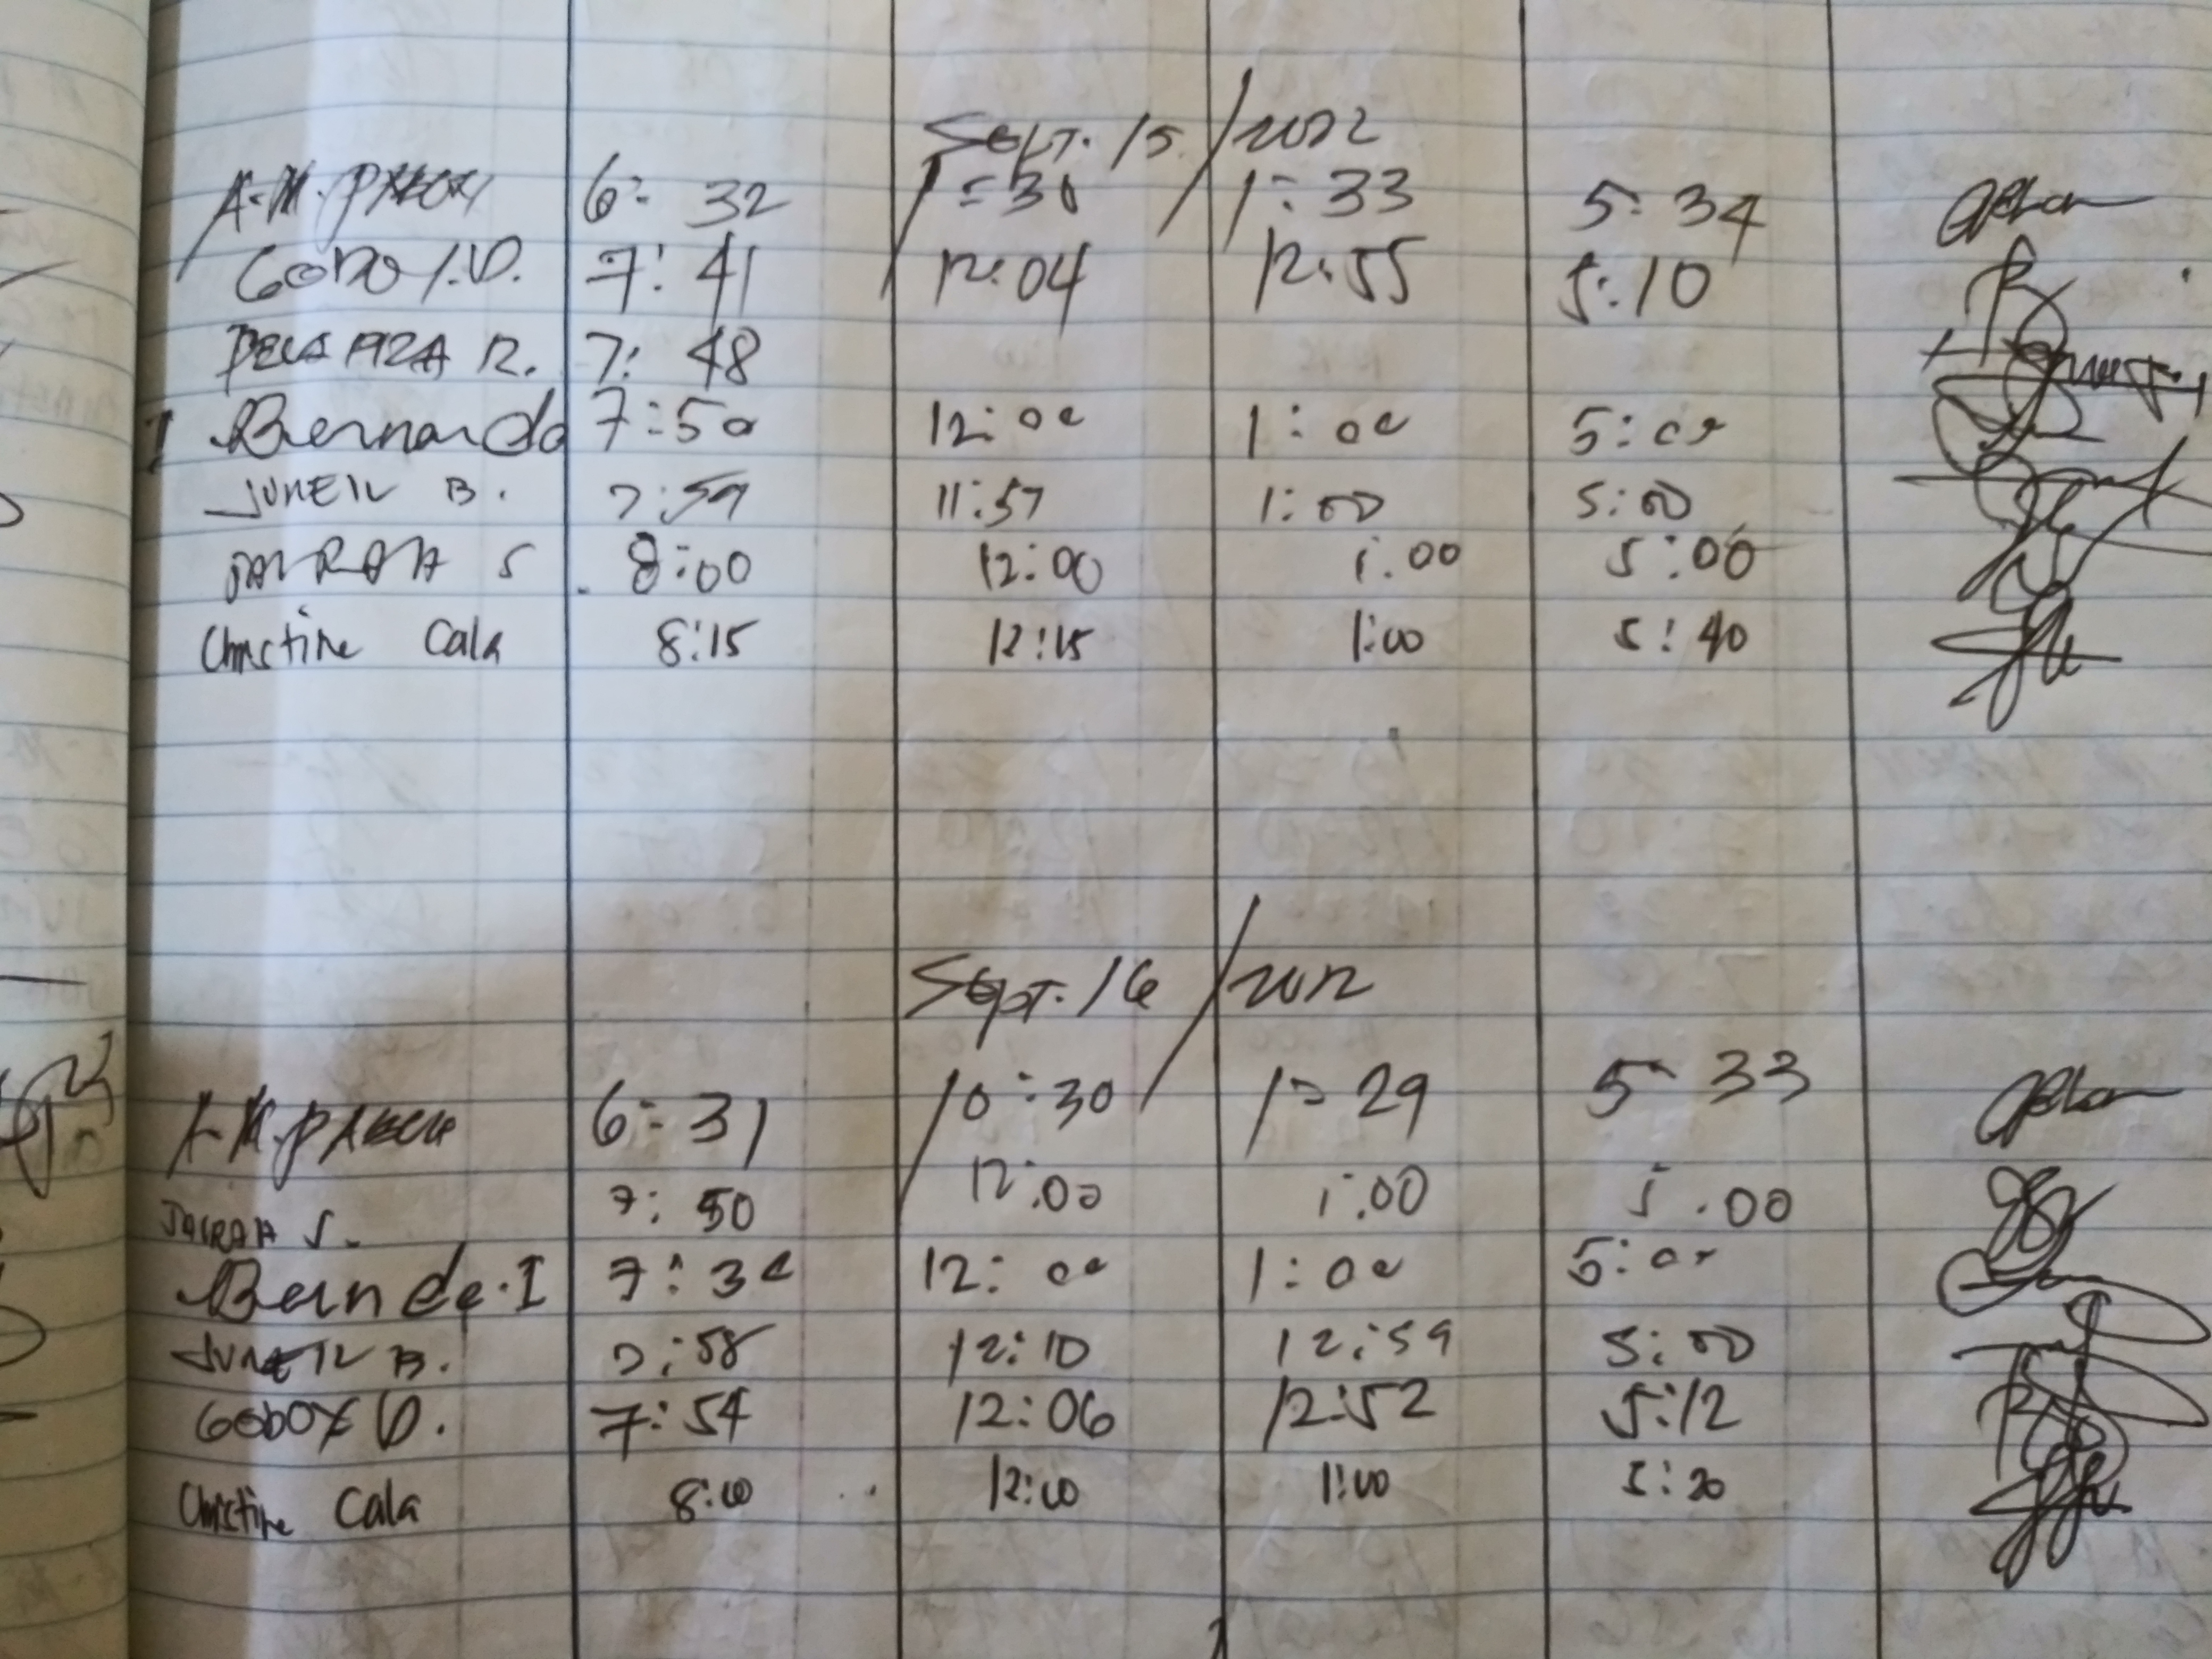 Sept. 15 / 2022
A.M. 6: 32 1:33 5: 34
7: 41 12:04 12:55 5:10
R. 7: 48
I Bernardo 7:50 12:00 1:00 5:00
JUNEIL B. 7:59 11:57 1:00 5:00
S. 8:00 12:00 1:00 5:00
Christine Cala 8:15 12:15 1:00 5:40
Sept. 16 / 2022
A.M. 6: 31 10:30 1: 29 5: 33
JAIRAH S. 7: 50 12:00 1:00 5:00
7:30 12:00 1:00 5:00
JUNEIL B. 7:58 12:10 12:59 5:00
7:54 12:06 12:52 5:12
Christine Cala 8:00 12:00 1:00 5:20